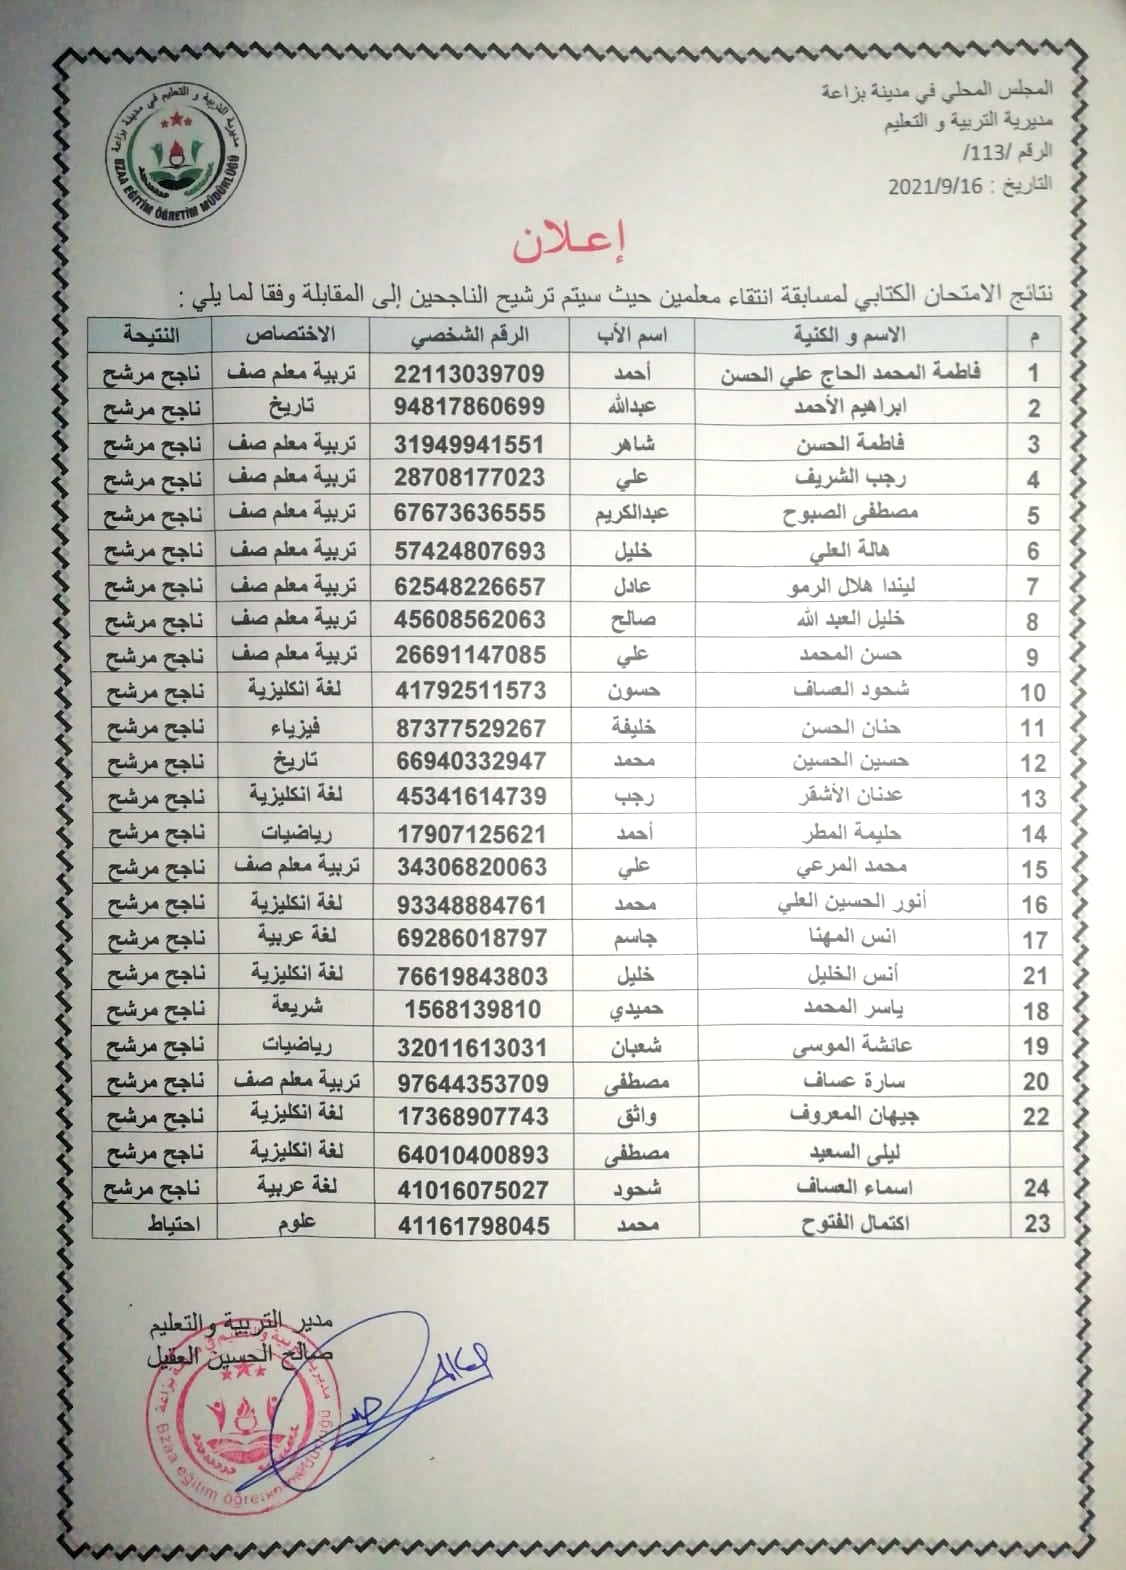 المجلس المحلي في مدينة بزاعة
مديرية التربية و التعليم
الرقم /113/
التاريخ : 2021/9/16
مديرية التربية و التعليم في مدينة بزاعة
BZAA EĞİTİM ÖĞRETİM MÜDÜRLÜĞÜ
إعـلان
نتائج الامتحان الكتابي لمسابقة انتقاء معلمين حيث سيتم ترشيح الناجحين إلى المقابلة وفقا لما يلي :
م الاسم و الكنية اسم الأب الرقم الشخصي الاختصاص النتيحة
1 فاطمة المحمد الحاج علي الحسن أحمد 22113039709 تربية معلم صف ناجح مرشح
2 ابراهيم الأحمد عبدالله 94817860699 تاريخ ناجح مرشح
3 فاطمة الحسن شاهر 31949941551 تربية معلم صف ناجح مرشح
4 رجب الشريف علي 28708177023 تربية معلم صف ناجح مرشح
5 مصطفى الصبوح عبدالكريم 67673636555 تربية معلم صف ناجح مرشح
6 هالة العلي خليل 57424807693 تربية معلم صف ناجح مرشح
7 ليندا هلال الرمو عادل 62548226657 تربية معلم صف ناجح مرشح
8 خليل العبد الله صالح 45608562063 تربية معلم صف ناجح مرشح
9 حسن المحمد علي 26691147085 تربية معلم صف ناجح مرشح
10 شحود العساف حسون 41792511573 لغة انكليزية ناجح مرشح
11 حنان الحسن خليفة 87377529267 فيزياء ناجح مرشح
12 حسين الحسين محمد 66940332947 تاريخ ناجح مرشح
13 عدنان الأشقر رجب 45341614739 لغة انكليزية ناجح مرشح
14 حليمة المطر أحمد 17907125621 رياضيات ناجح مرشح
15 محمد المرعي علي 34306820063 تربية معلم صف ناجح مرشح
16 أنور الحسين العلي محمد 93348884761 لغة انكليزية ناجح مرشح
17 انس المهنا جاسم 69286018797 لغة عربية ناجح مرشح
21 أنس الخليل خليل 76619843803 لغة انكليزية ناجح مرشح
18 ياسر المحمد حميدي 1568139810 شريعة ناجح مرشح
19 عائشة الموسى شعبان 32011613031 رياضيات ناجح مرشح
20 سارة عساف مصطفى 97644353709 تربية معلم صف ناجح مرشح
22 جيهان المعروف واثق 17368907743 لغة انكليزية ناجح مرشح
ليلى السعيد مصطفى 64010400893 لغة انكليزية ناجح مرشح
24 اسماء العساف شحود 41016075027 لغة عربية ناجح مرشح
23 اكتمال الفتوح محمد 41161798045 علوم احتياط
مدير التربية والتعليم
صالح الحسين العقيل
Bzaa eğitim öğretim